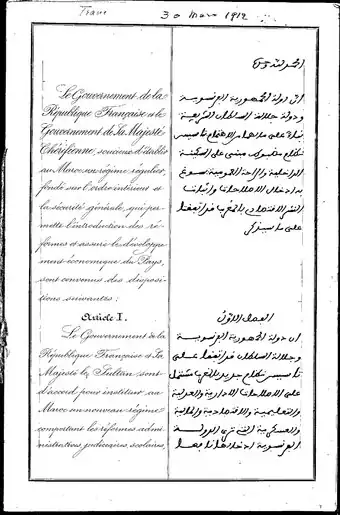 30 Mars 1912
Le Gouvernement de la
République Française et le
Gouvernement de Sa Majesté
Chérifienne, soucieux d'établir
au Maroc un régime régulier,
fondé sur l'ordre intérieur et
la sécurité générale, qui per-
mette l'introduction des ré-
formes et assure le développe-
ment économique du Pays,
sont convenus des disposi-
tions suivantes:
Article I.
Le Gouvernement de la
République Française et Sa
Majesté le Sultan sont
d'accord pour instituer au
Maroc un nouveau régime
comportant les réformes admi-
nistratives, judiciaires, scolaires,
الحمد لله
ان دولة الجمهورية الفرنسوية
ودولة جلالة السلطان الشريفة
تاسيس
نظام مبني على السكينة
الداخلية
ادخال الاصلاحات
الاقتصادي بالمغرب قد اتفقتا
على ما سيذكر
الفصل الاول
ان دولة الجمهورية الفرنسوية
وجلالة السلطان قد اتفقا على
تاسيس نظام جديد بالمغرب مشتمل
على الاصلاحات الادارية والعدلية
والتعليمية والاقتصادية والمالية
والعسكرية التي ترى الدولة
الفرنسوية ادخالها